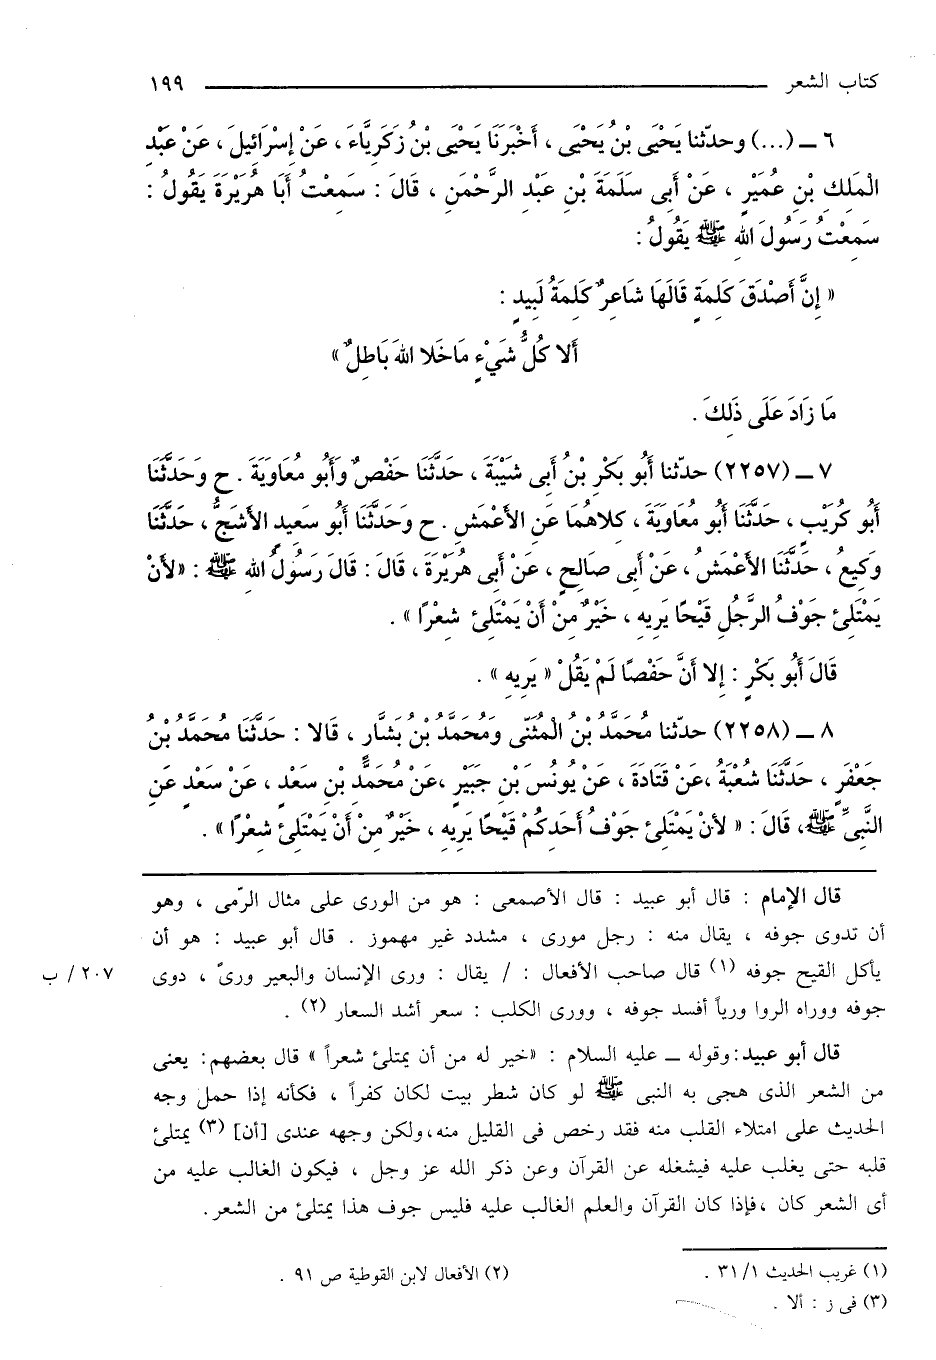 كتاب الشعر ١٩٩
٦ ــ (...) وحدّثنا يَحْيَى بْنُ يَحْيَى ، أَخْبَرَنَا يَحْيَى بْنُ زَكَرِيَّاءَ ، عَنْ إِسْرَائِيلَ ، عَنْ عَبْدِ
الْمَلِكِ بْنِ عُمَيْرٍ ، عَنْ أَبِى سَلَمَةَ بْنِ عَبْدِ الرَّحْمَنِ ، قَالَ : سَمِعْتُ أَبَا هُرَيْرَةَ يَقُولُ :
سَمِعْتُ رَسُولَ اللهِ ﷺ يَقُولُ :
« إِنَّ أَصْدَقَ كَلِمَةٍ قَالَهَا شَاعِرٌ كَلِمَةُ لَبِيدٍ :
أَلا كُلُّ شَيْءٍ مَا خَلا اللهَ بَاطِلٌ »
مَا زَادَ عَلَى ذَلِكَ .
٧ ــ (٢٢٥٧) حدّثنا أَبُو بَكْرِ بْنُ أَبِى شَيْبَةَ ، حَدَّثَنَا حَفْصٌ وَأَبُو مُعَاوِيَةَ . ح وَحَدَّثَنَا
أَبُو كُرَيْبٍ ، حَدَّثَنَا أَبُو مُعَاوِيَةَ ، كِلاهُمَا عَنِ الأَعْمَشِ . ح وَحَدَّثَنَا أَبُو سَعِيدٍ الأَشَجُّ ، حَدَّثَنَا
وَكِيعٌ ، حَدَّثَنَا الأَعْمَشُ ، عَنْ أَبِى صَالِحٍ ، عَنْ أَبِى هُرَيْرَةَ ، قَالَ : قَالَ رَسُولُ اللهِ ﷺ : «لأَنْ
يَمْتَلِئَ جَوْفُ الرَّجُلِ قَيْحًا يَرِيهِ ، خَيْرٌ مِنْ أَنْ يَمْتَلِئَ شِعْرًا » .
قَالَ أَبُو بَكْرٍ : إِلا أَنَّ حَفْصًا لَمْ يَقُلْ « يَرِيهِ » .
٨ ــ (٢٢٥٨) حدّثنا مُحَمَّدُ بْنُ الْمُثَنَّى وَمُحَمَّدُ بْنُ بَشَّارٍ ، قَالا : حَدَّثَنَا مُحَمَّدُ بْنُ
جَعْفَرٍ ، حَدَّثَنَا شُعْبَةُ ،عَنْ قَتَادَةَ ، عَنْ يُونُسَ بْنِ جُبَيْرٍ ،عَنْ مُحَمَّدِ بْنِ سَعْدٍ ، عَنْ سَعْدٍ عَنِ
النَّبِىِّ ﷺ، قَالَ : « لأَنْ يَمْتَلِئَ جَوْفُ أَحَدِكُمْ قَيْحًا يَرِيهِ ، خَيْرٌ مِنْ أَنْ يَمْتَلِئَ شِعْرًا » .
قال الإمام : قال أبو عبيد : قال الأصمعى : هو من الورى على مثال الرّمى ، وهو
أن تدوى جوفه ، يقال منه : رجل مورى ، مشدد غير مهموز . قال أبو عبيد : هو أن
يأكل القيح جوفه (١) قال صاحب الأفعال : / يقال : ورى الإنسان والبعير ورىً ، دوى
٢٠٧ / ب
جوفه ووراه الروا ورياً أفسد جوفه ، وورى الكلب : سعر أشد السعار (٢) .
قال أبو عبيد:وقوله ــ عليه السلام : «خير له من أن يمتلئ شعراً » قال بعضهم: يعنى
من الشعر الذى هجى به النبى ﷺ لو كان شطر بيت لكان كفراً ، فكأنه إذا حمل وجه
الحديث على امتلاء القلب منه فقد رخص فى القليل منه،ولكن وجهه عندى [أن] (٣) يمتلئ
قلبه حتى يغلب عليه فيشغله عن القرآن وعن ذكر الله عز وجل ، فيكون الغالب عليه من
أى الشعر كان ،فإذا كان القرآن والعلم الغالب عليه فليس جوف هذا يمتلئ من الشعر.
(١) غريب الحديث ٣١/١ . (٢) الأفعال لابن القوطية ص ٩١ .
(٣) فى ز : ألا .